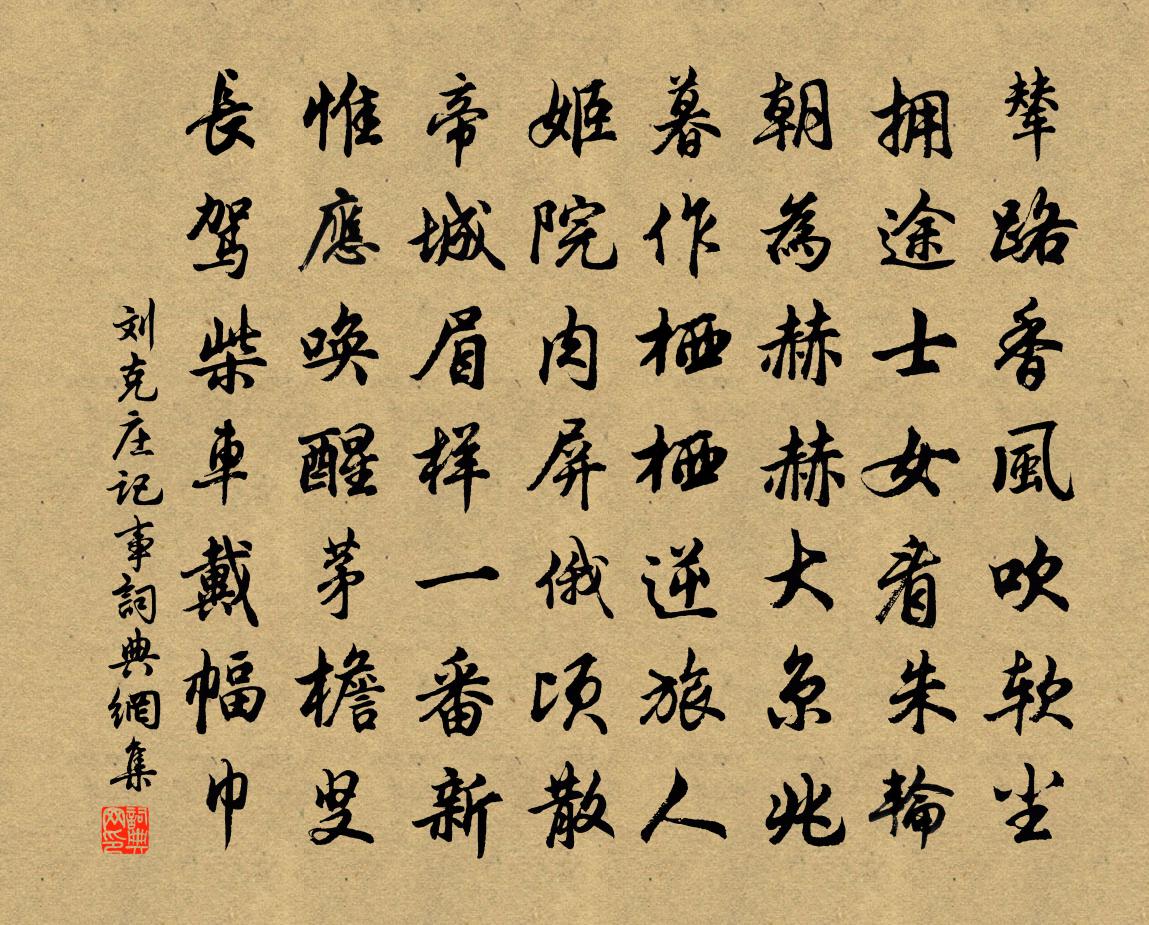 輦路香風吹軟塵
拥途士女看朱輪
朝為赫赫大京兆
暮作栖栖逆旅人
姬院肉屏俄頃散
帝城眉样一番新
惟應唤醒茅檐叟
長駕柴車戴幅巾
刘克庄记事詞典網集
詞典网印